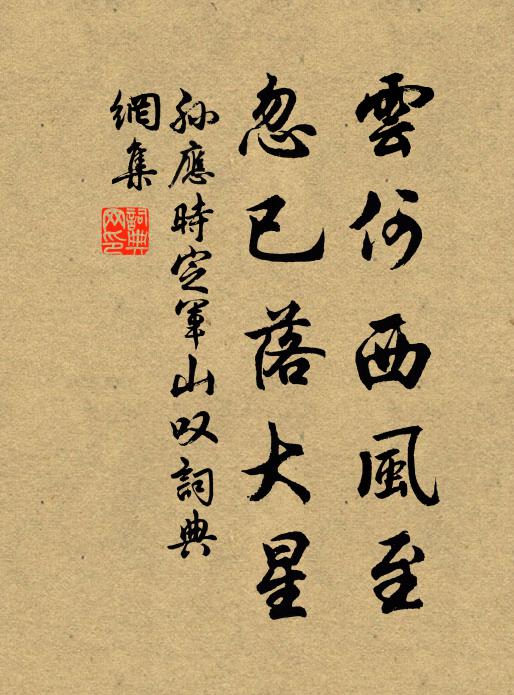 雲何西風至
忽已落大星
孙應時定軍山叹詞典
網集
詞典
网印